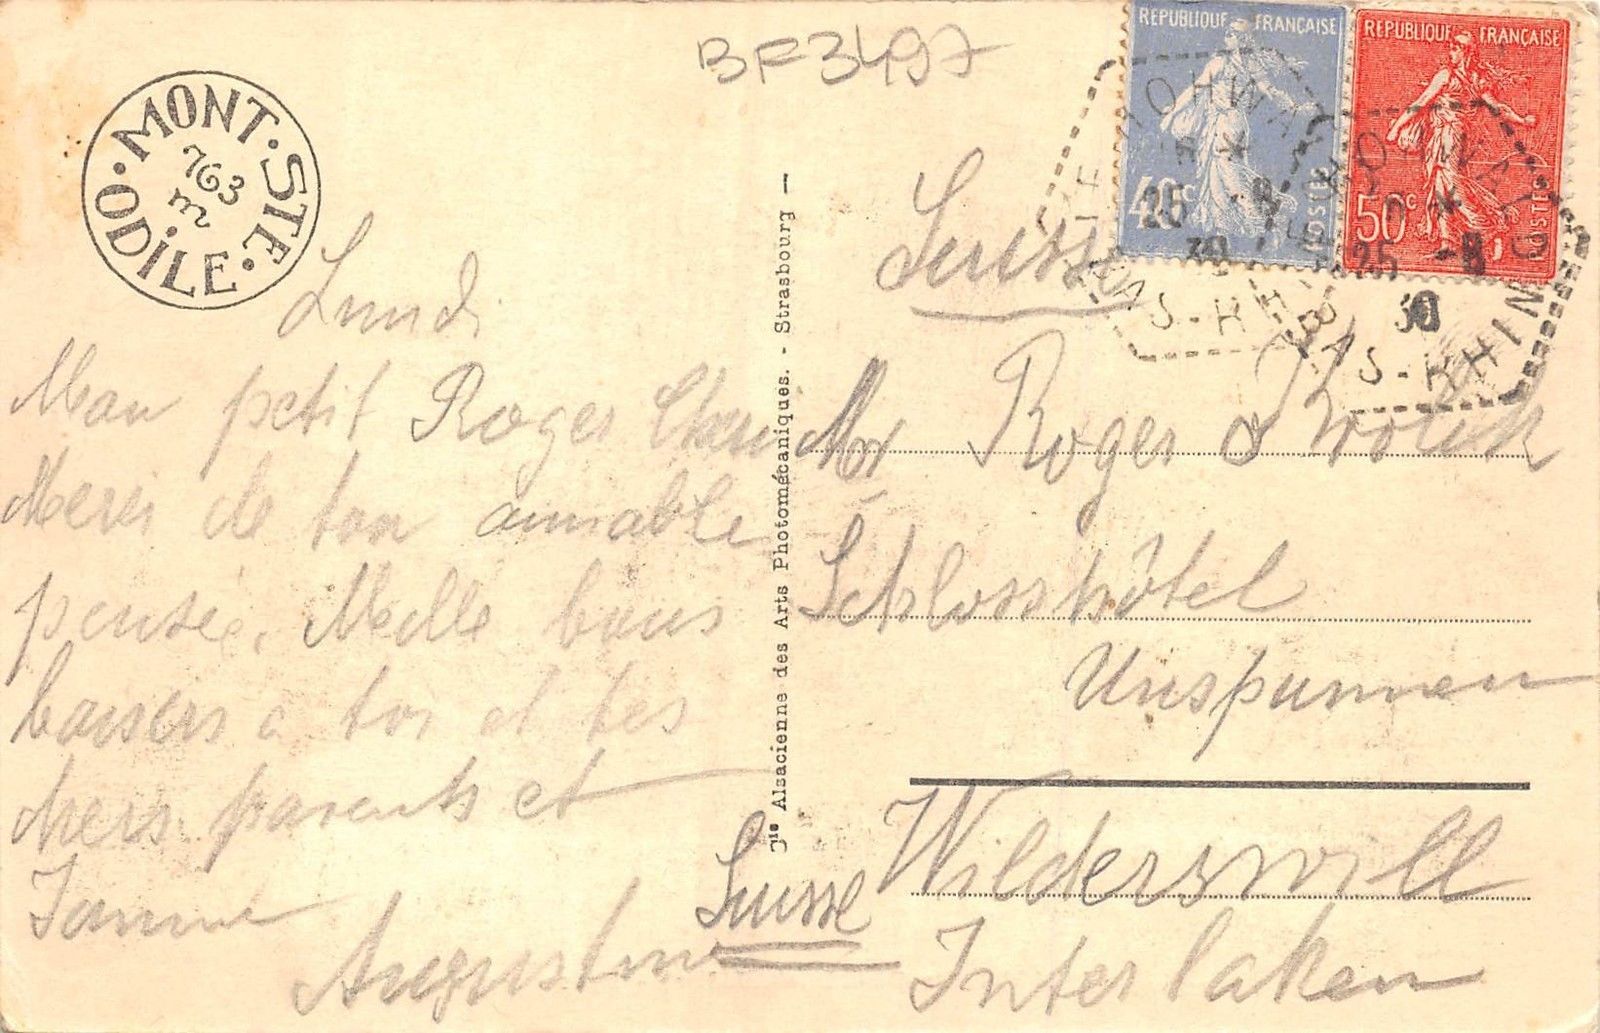 BF3497
MONT·STE·ODILE·
763
m
REPUBLIQUE FRANÇAISE
40c
POSTES
REPUBLIQUE FRANÇAISE
50c
POSTES
25 -8
30
BAS-RHIN
25 -8
30
BAS-RHIN
Lundi
Mon petit Roger
Merci de ton aimable
pensée. Mille bons
baisers a toi et tes
chers parents et
Augustine
Cie Alsacienne des Arts Photomécaniques. - Strasbourg —
Suisse
Mr Roger
Schlosshôtel
Unspunnen
Wilderswill
Suisse
Interlaken